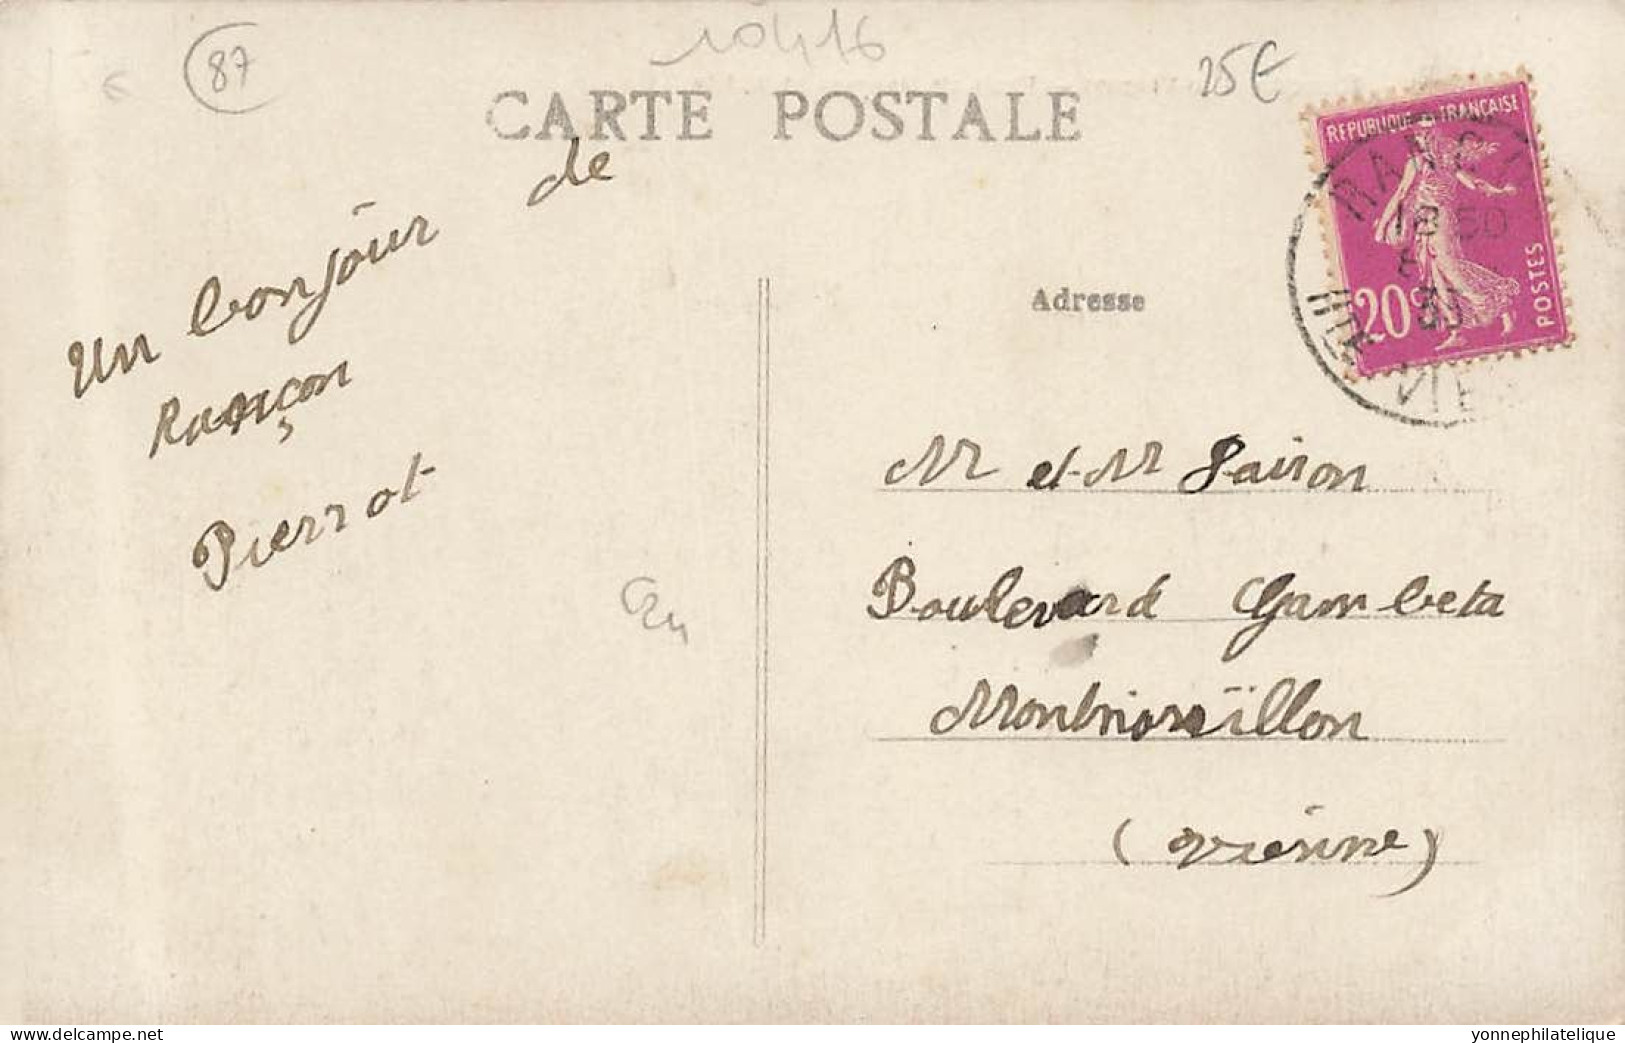 87
10416
25€
CARTE POSTALE
REPUBLIQUE FRANÇAISE
POSTES
20c
RANC
18 50
31
Hte VIE
Un bonjour de
Rançon
Pierrot
Adresse
Mr et Mr
Boulevard Gambeta
Montmorillon
(Vienne)
delcampe.net
yonnephilatelique